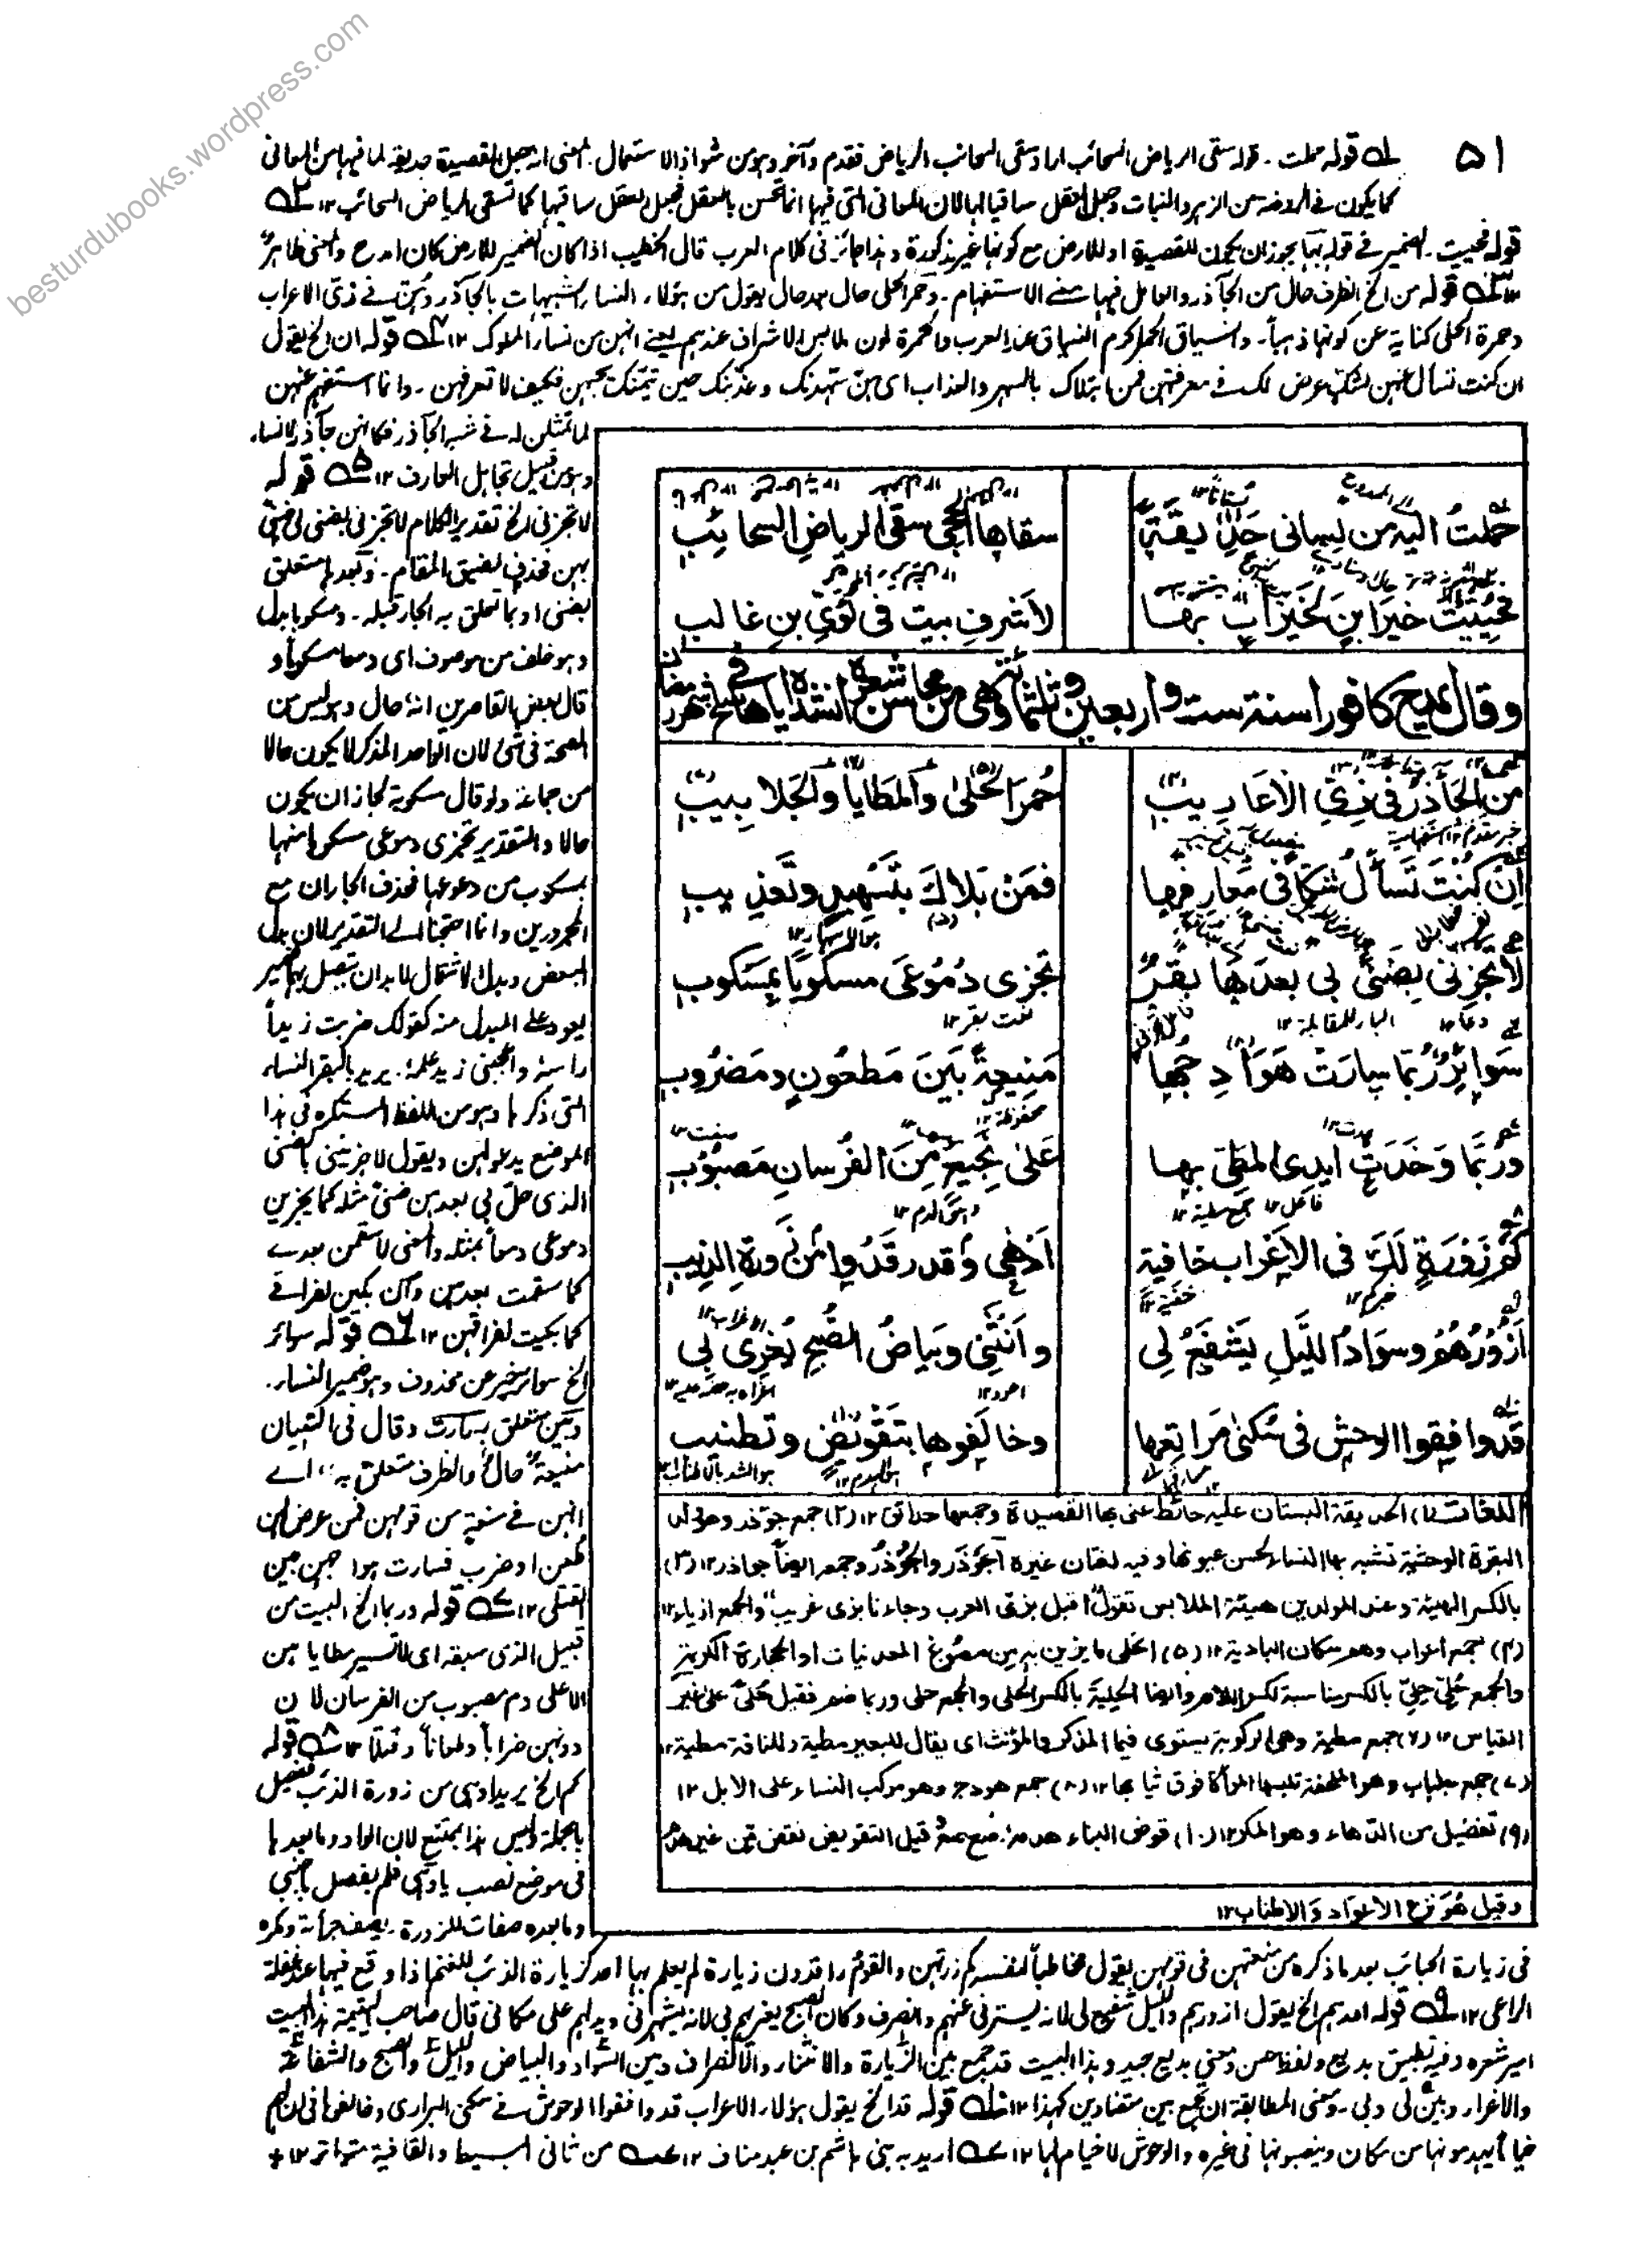 besturdubooks.wordpress.com
٥١
١ قوله حملت ـ قوله سقى الرياض السحائب اراد سقى السحائب الرياض فقدم وآخر وهو من شواذ الاستعمال ـ المعنى انه جعل القصيدة حديقة لما فيها من المعانى
كما يكون فى الروضة من الزهر والنبات وجعل العقل ساقيا لها لان المعانى التى فيها انما تحسن بالعقل فجعل العقل ساقيها كما تسقى الرياض السحائب ١٢ ٢
قوله فحييت ـ الضمير فى قوله بها يجوز ان يكون للقصيدة او للارض مع كونها غير مذكورة وهذا جائز فى كلام العرب قال الخطيب اذا كان الضمير للارض كان امدح والمعنى ظاهر
١٢ ٣ قوله من الخ الظرف حال من الجآذر والعامل فيها معنى الاستفهام ـ وحمر الحلى حال بعد حال يقول من هؤلاء النساء الشبيهات بالجآذر وهن فى زى الاعراب
وحمرة الحلى كناية عن كونها ذهبا ـ والنياق الحمر كرم النياق عند العرب والحمرة لون ملابس الاشراف عندهم يعنى انهن من نساء الملوك ١٢ ٤ قوله ان الخ يقول
ان كنت تسأل عنهن لشك عرض لك فى معرفتهن فمن ابتلاك بالسهر والعذاب اى هن سهدنك وعذبنك حين تيمنك بحبهن فكيف لا تعرفهن ـ وانما استفهم عنهن
لما تمثلن له فى شبه الجآذر فكانهن جآذر لا نساء
وهو من قبيل تجاهل العارف ١٢ ٥ قوله
لا تجزنى الخ تقدير الكلام لا تجزنى بضنى لى ضنى
بهن فحذف لضيق المقام ـ وبعدها متعلق
بضنى او بما تعلق به الجار قبله ـ ومسكوبا بدل
وهو خلف من موصوف اى دمعا مسكوبا و
قال بعض القاصرين انه حال وهو ليس من
الصحة فى شئ لان الواحد المذكر لا يكون حالا
من جماعة ولو قال مسكوبة لجاز ان يكون
حالا والتقدير تجزى دموعى مسكوبا منها
بمسكوب من دموعها فحذف الجاران مع
المجرورين وانما احتجنا الى التقدير لان بدل
البعض وبدل الاشتمال لا بد ان يتصل بها ضمير
يعود على المبدل منه كقولك ضربت زيدا
راسه واعجبنى زيد علمه ـ يريد بالبقر النساء
التى ذكرها وهو من اللفظ المستكره فى هذا
الموضع يدعو لهن ويقول لا جزيننى بالضنى
الذى حل بى بعدهن ضنى مثله كما يجزين
دموعى دمعا بمثله والمعنى لا سقمن بعدى
كما سقمت بعدهن وان بكين لفراقى
كما بكيت لفراقهن ١٢ ٦ قوله سوائر
الخ سوائر خبر عن محذوف وهو ضمير النساء ـ
وبين متعلق بسارت وقال فى التبيان
منيعة حال والظرف متعلق به، اى
انهن فى منعة من قومهن فمن عرض لهن
طعن او ضرب فسارت هوادجهن بين
القتلى ١٢ ٧ قوله وربما الخ البيت من
قبيل الذى سبقه اى لا تسير مطاياهن
الا على دم مصبوب من الفرسان لان
دونهن ضرابا وطعانا وقتلا ١٢ ٨ قوله
كم الخ يريد ادهى من زورة الذئب ففصل
بالجملة وليس هذا بممتنع لان الواو وما بعدها
فى موضع نصب بادهى فلم يفصل باجنبى
وما بعده صفات للزورة ـ يصف جرأته ومكره
حملتُ اليه من لسانى حديقةً
سقاها الحجى سقى الرياضِ السحائبِ
فحُيّيتَ خيرَ ابنٍ لخيرِ أبٍ بها
لأشرفِ بيت فى لؤيّ بن غالب
وقال يمدح كافورا سنة ست واربعين وثلثمائة وهى من محاسن شعره انشده اياها فى سلخ شهر رمضان
من الجآذرُ فى زيّ الاعاريبِ
حُمرَ الحُلىٰ والمطايا والجلابيبِ
اِن كنتَ تسألُ شكًّا فى معارفها
فمن بلاكَ بتسهيدٍ وتعذيبِ
لا تجزِنى بضنًى بى بعدها بقرٌ
تجزى دموعىَ مسكوبًا بمسكوبِ
سوائرٌ ربما سارت هوادجُها
منيعةً بينَ مطعونٍ ومضروبِ
وربّما وخدت ايدى المطىّ بها
علىٰ نجيعٍ مِنَ الفرسانِ مصبوبِ
كم زورةٍ لكَ فى الاعراب خافيةٍ
ادهىٰ وقد رقدوا من زورةِ الذيبِ
ازورُهم وسوادُ الليلِ يشفعُ لى
وانثنى وبياضُ الصبحِ يُغرى بى
قد وافقوا الوحش فى سكنىٰ مراتعها
وخالفوها بتقويضٍ وتطنيبِ
اللغات (١) الحديقة البستان عليه حائط عنى بها القصيدة وجمعها حدائق ١٢ (٢) جمع جوذر وهو ولد
البقرة الوحشية تشبه بها النساء لحسن عيونها وفيه لغتان غيره الجُوذَر والجُوذُر وجمعه ايضا جواذر ١٢ (٣)
بالكسر الهيئة وعند المولدين هيئة الملابس تقول اقبل بزى العرب وجاءنا بزى غريب والجمع ازياء ١٢
(٤) جمع اعراب وهم سكان البادية ١٢ (٥) الحلى ما يزين به من مصوغ المعدنيات او الحجارة الكريمة
والجمع حُلىّ حِلىّ بالكسر مناسبة لكسر اللام وايضا الحلية بالكسر الحلى والجمع حلى وربما ضم فقيل حُلى على غير
القياس ١٢ (٦) جمع مطية وهى الركوبة يستوى فيها المذكر والمؤنث اى يقال للبعير مطية وللناقة مطية ١٢
(٧) جمع جلباب وهو الملحفة تلبسها المرأة فوق ثيابها ١٢ (٨) جمع هودج وهو مركب النساء على الابل ١٢
(٩) تفضيل من الدهاء وهو المكر ١٢ (١٠) قوض البناء هدمه
وقيل هُوَ نزع الاعواد والاطناب ١٢
فى زيارة الحبائب بعد ما ذكره من منعتهن فى قومهن يقول مخاطبا لنفسه كم زرتهن والقوم راقدون زيارة لم يعلم بها احد كزيارة الذئب للغنم اذا وقع فيها عند غفلة
الراعى ١٢ ٩ قوله ازورهم الخ يقول ازورهم والليل شفيع لى لانه يسترنى عنهم وانصرف وكان الصبح يغريهم بى لانه يشهرنى ويدلهم على مكانى قال صاحب اليتيمة هذا البيت
امير شعره وفيه تطبيق بديع ولفظ حسن ومعنى بديع جيد وهذا البيت قد جمع بين الزيارة والانثناء والانصراف وبين السواد والبياض والليل والصبح والشفاعة
والاغراء وبين لى وبى ـ ومعنى المطابقة ان تجمع بين متضادين كهذا ١٢ ١٠ قوله قد الخ يقول هؤلاء الاعراب قد وافقوا الوحوش فى سكنى البرارى وخالفوها فى ان لهم
خياما يهدمونها من مكان وينصبونها فى غيره والوحوش لا خيام لها ١٢ اريد به بنى هاشم بن عبد مناف ١٢ من ثانى البسيط والقافية متواتر ١٢